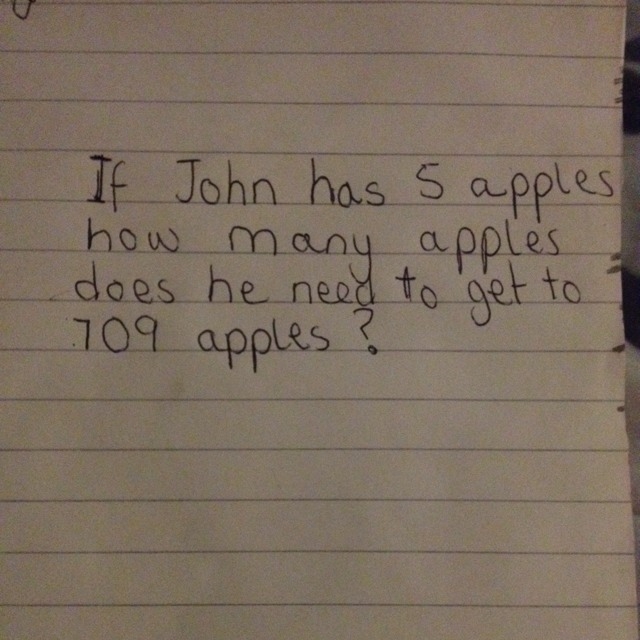 If John has 5 apples
how many apples
does he need to get to
709 apples?